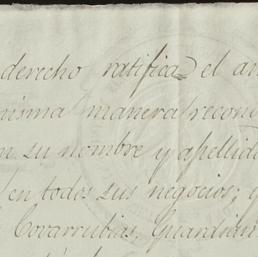 derecho ratifica el an
misma manera recono
su nombre y apellido
en todos sus negocios;
Covarrubias. Guardian